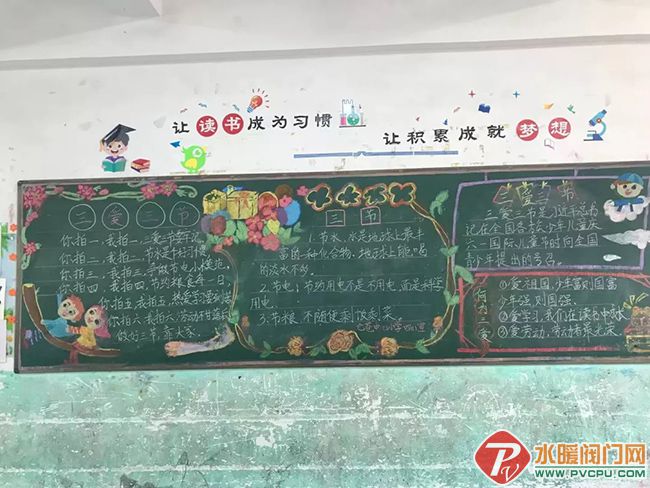 让读书成为习惯
让积累成就梦想
三爱三节
你拍一，我拍一，三爱三节要牢记。
你拍二，我拍二，节水是个好习惯
你拍三，我拍三，争做节电小模范，
你拍四，我拍四，节约粮食每一日，
你拍五，我拍五，热爱学习
你拍六，我拍六，劳动
做好三节靠大家。
三节
1.节水，水是地球上最丰
富的一种化合物，地球上能喝
的淡水不多。
2.节电：节约用电不是不用电，而是科学
用电。
3.节粮：不随便剩饭剩菜。
三爱三节
三爱三节是习近平总书
记在全国各族少年儿童庆
六一国际儿童节时向全国
青少年提出的号召。
何为三爱
①爱祖国，少年富则国富
少年强，则国强。
②爱学习，我们在读书中成长
③爱劳动，劳动最光荣
水暖阀门网
WWW.PVCPU.COM